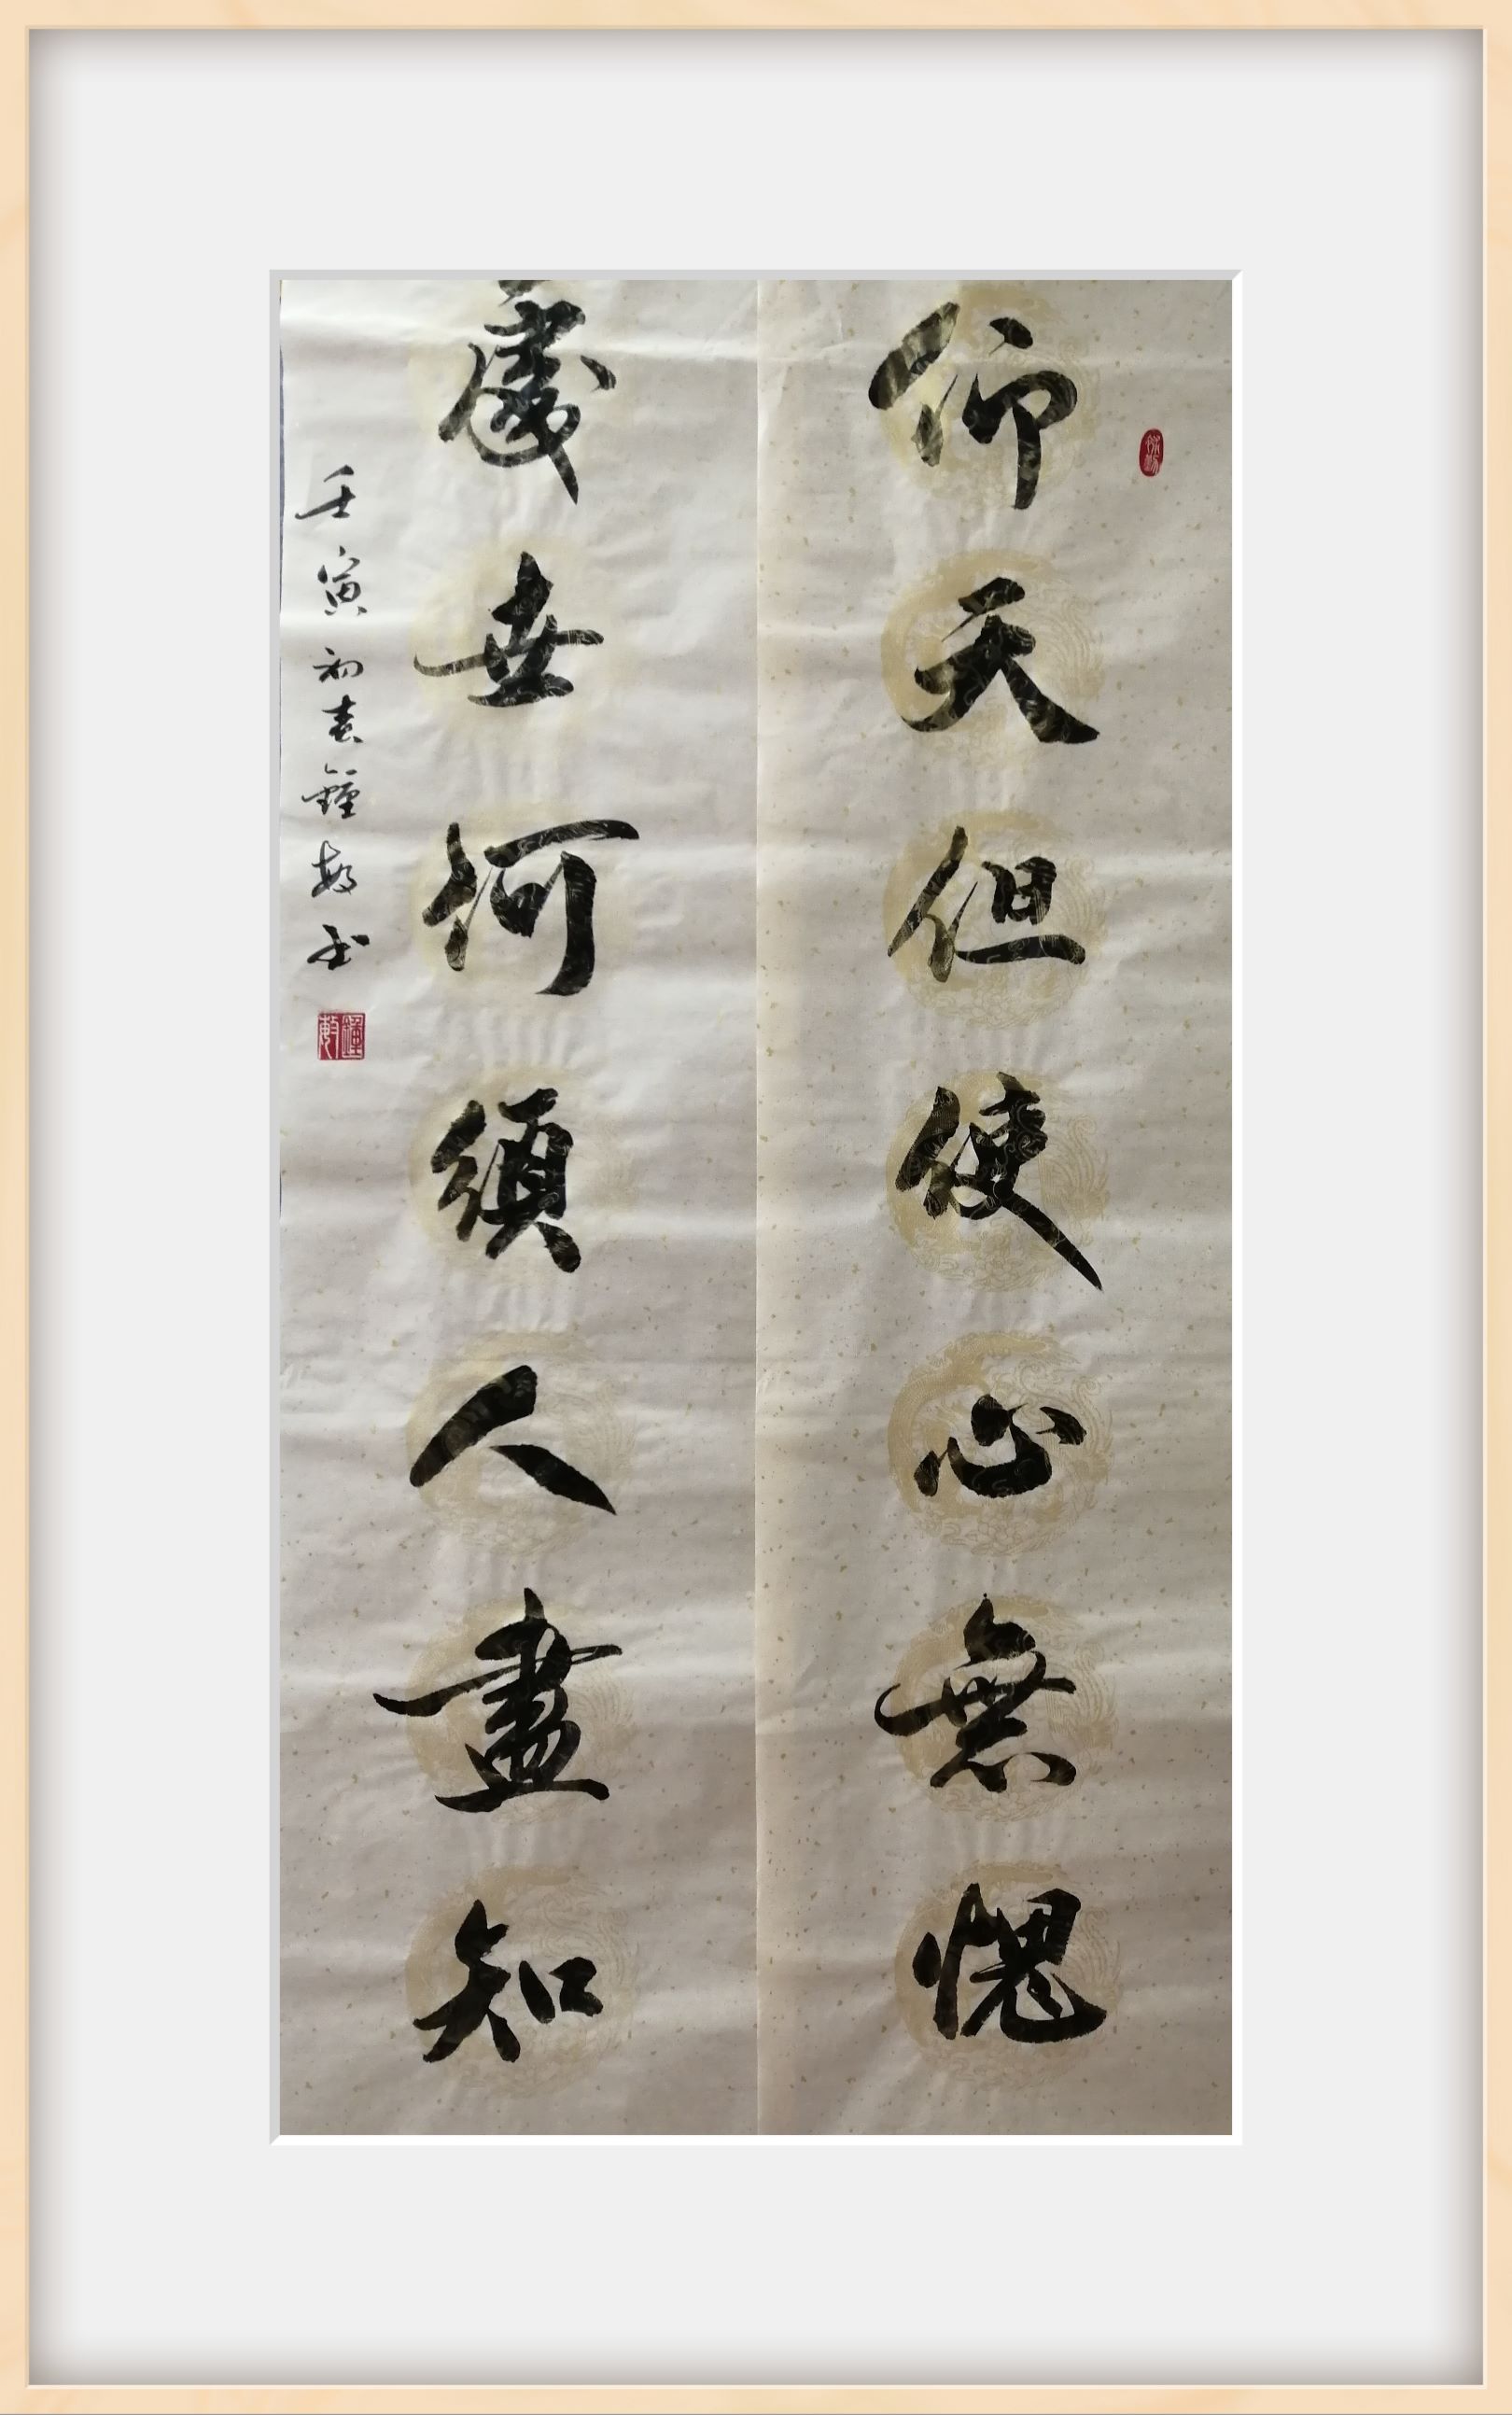 仰天但使心無愧
處世何須人盡知
壬寅初春鐘敏書
鐘敏